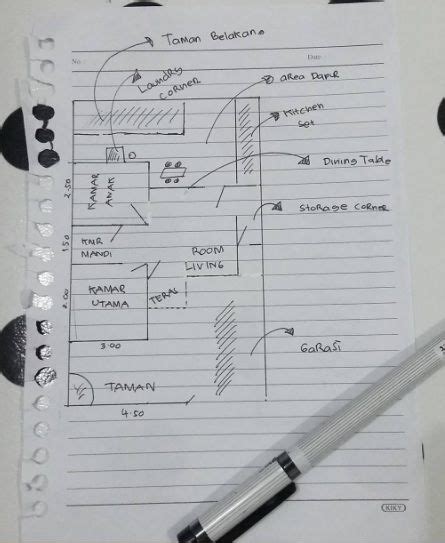 Taman Belakang
No
Date
Laundry
corner
area Dapur
Kitchen
set
D
Dining Table
2.50
KAMAR
ANAK
Storage Corner
1.50
KMR
MANDI
ROOM
LIVING
2.00
KAMAR
UTAMA
TERAS
3.00
GARASI
TAMAN
4.50
KIKY